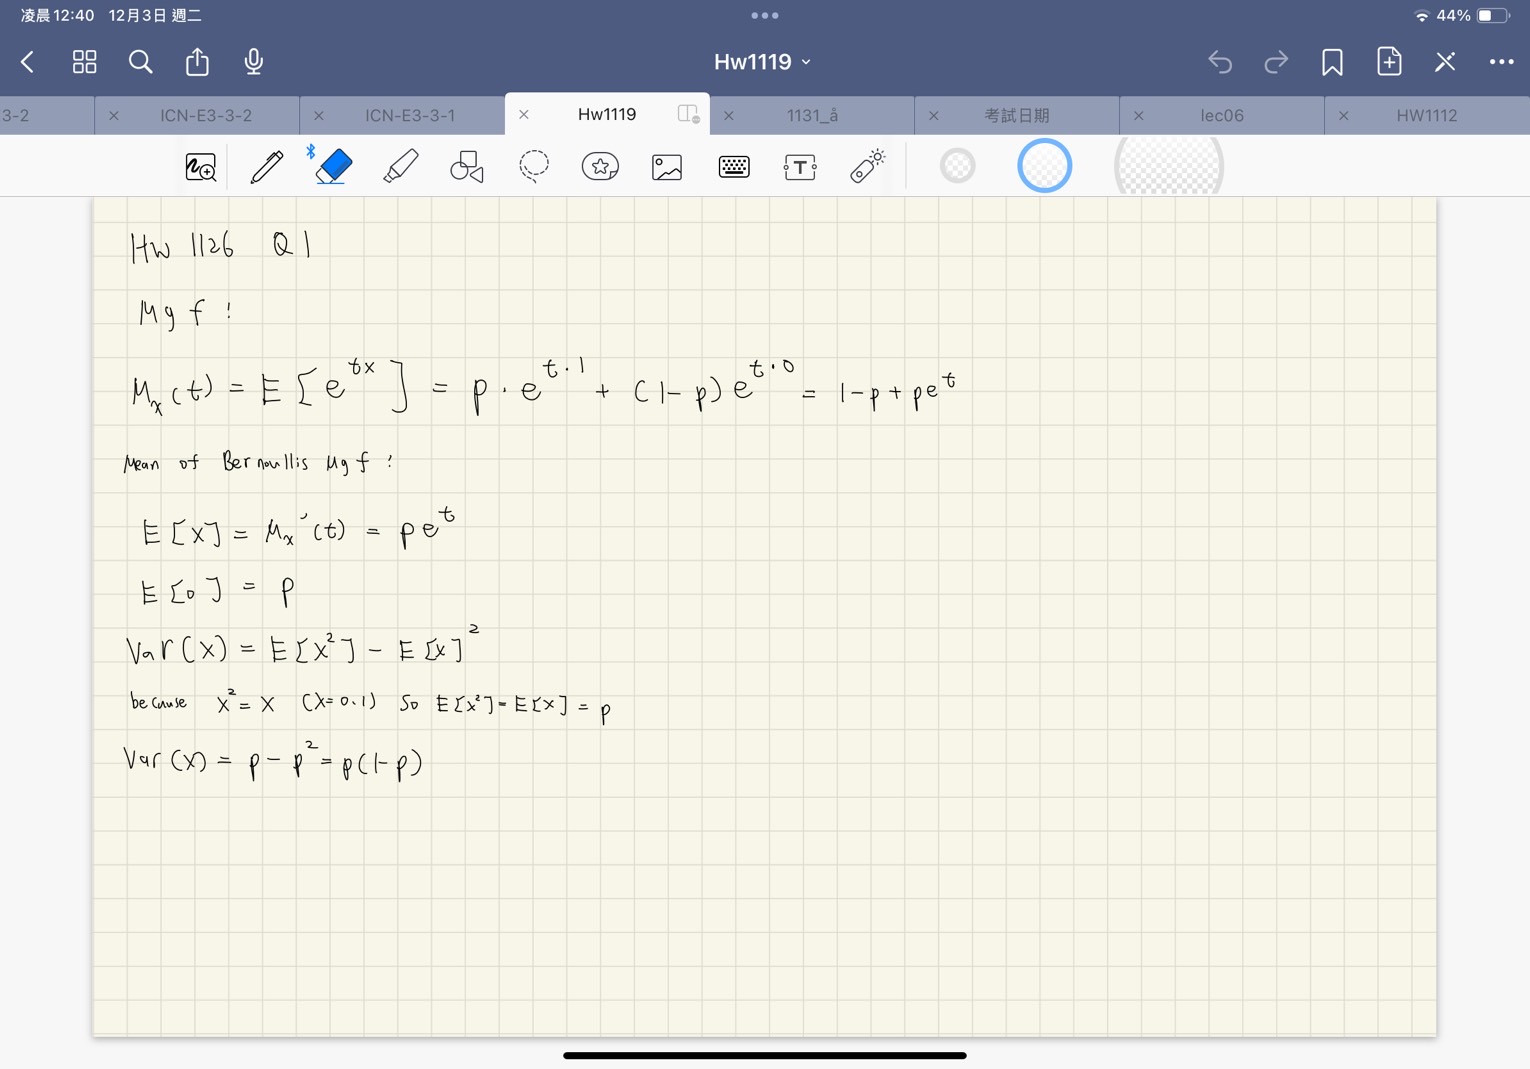 凌晨12:40 12月3日 週二
44%
Hw1119
3-2
ICN-E3-3-2
ICN-E3-3-1
Hw1119
1131_å
考試日期
lec06
HW1112
HW 1126 Q1
Mgf :
Mx(t) = E[e^tx] = p·e^t·1 + (1-p)e^t·0 = 1-p+pe^t
Mean of Bernoullis Mgf :
E[X] = Mx'(t) = pe^t
E[0] = p
Var(X) = E[X²] - E[X]²
because X²=X (X=0.1) So E[X²]=E[X] = p
Var(X) = p-p²=p(1-p)